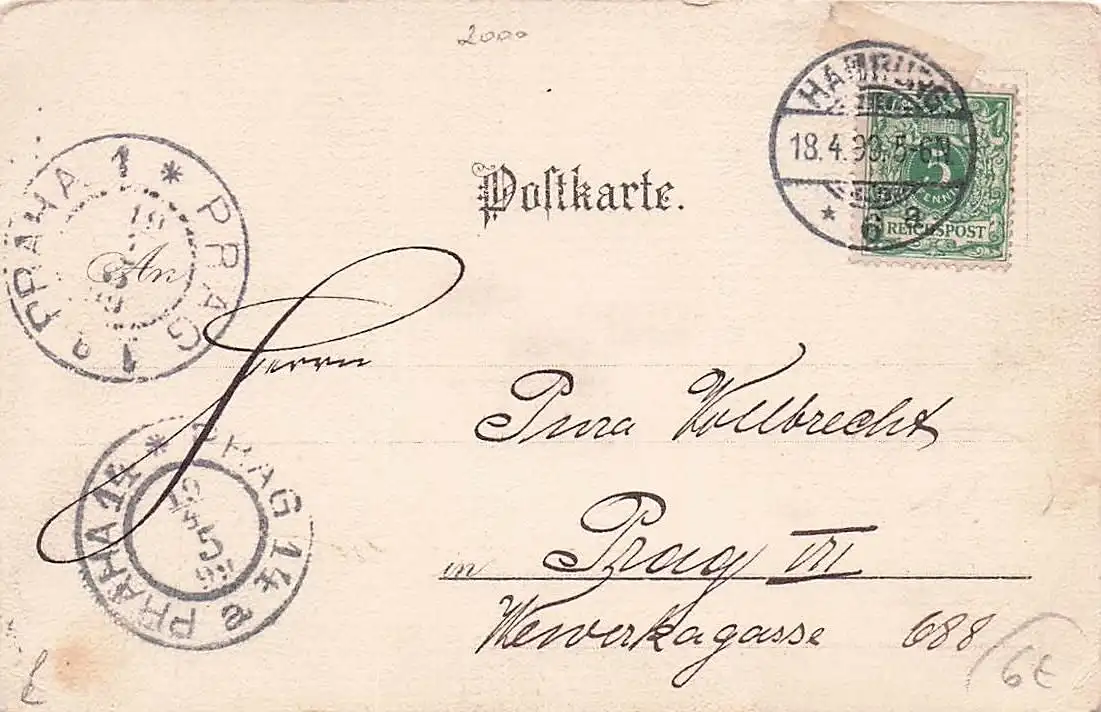 2000
HAMBURG
18.4.99.5-6N
* 6 a
5
PFENNIG
REICHSPOST
Postkarte.
PRAHA 1 * PRAG 1
19
An
Herrn
Pura Vollbrecht
PRAHA 14 * PRAG 14
19
5
in Prag VII
Wewerkagasse 688
6E